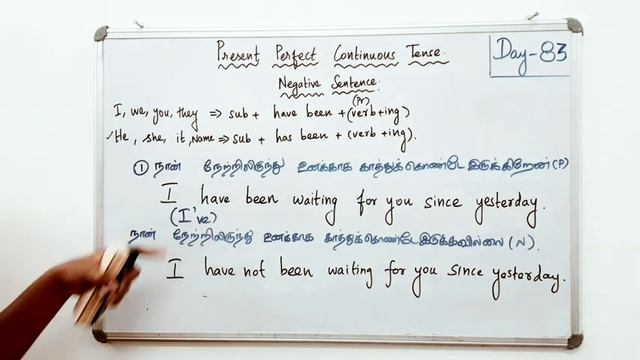 Present Perfect Continuous Tense.
Day-83
Negative Sentence:
(Pr)
I, we, you, they => sub + have been + (verb+ing)
He, she, it, Name => sub + has been + (verb+ing).
① நான் நேற்றிலிருந்து உனக்காக காத்துக்கொண்டே இருக்கிறேன் (P)
I have been waiting for you since yesterday.
(I've)
நான் நேற்றிலிருந்து உனக்காக காத்துக்கொண்டேஇருக்கவில்லை (N).
I have not been waiting for you since yesterday.